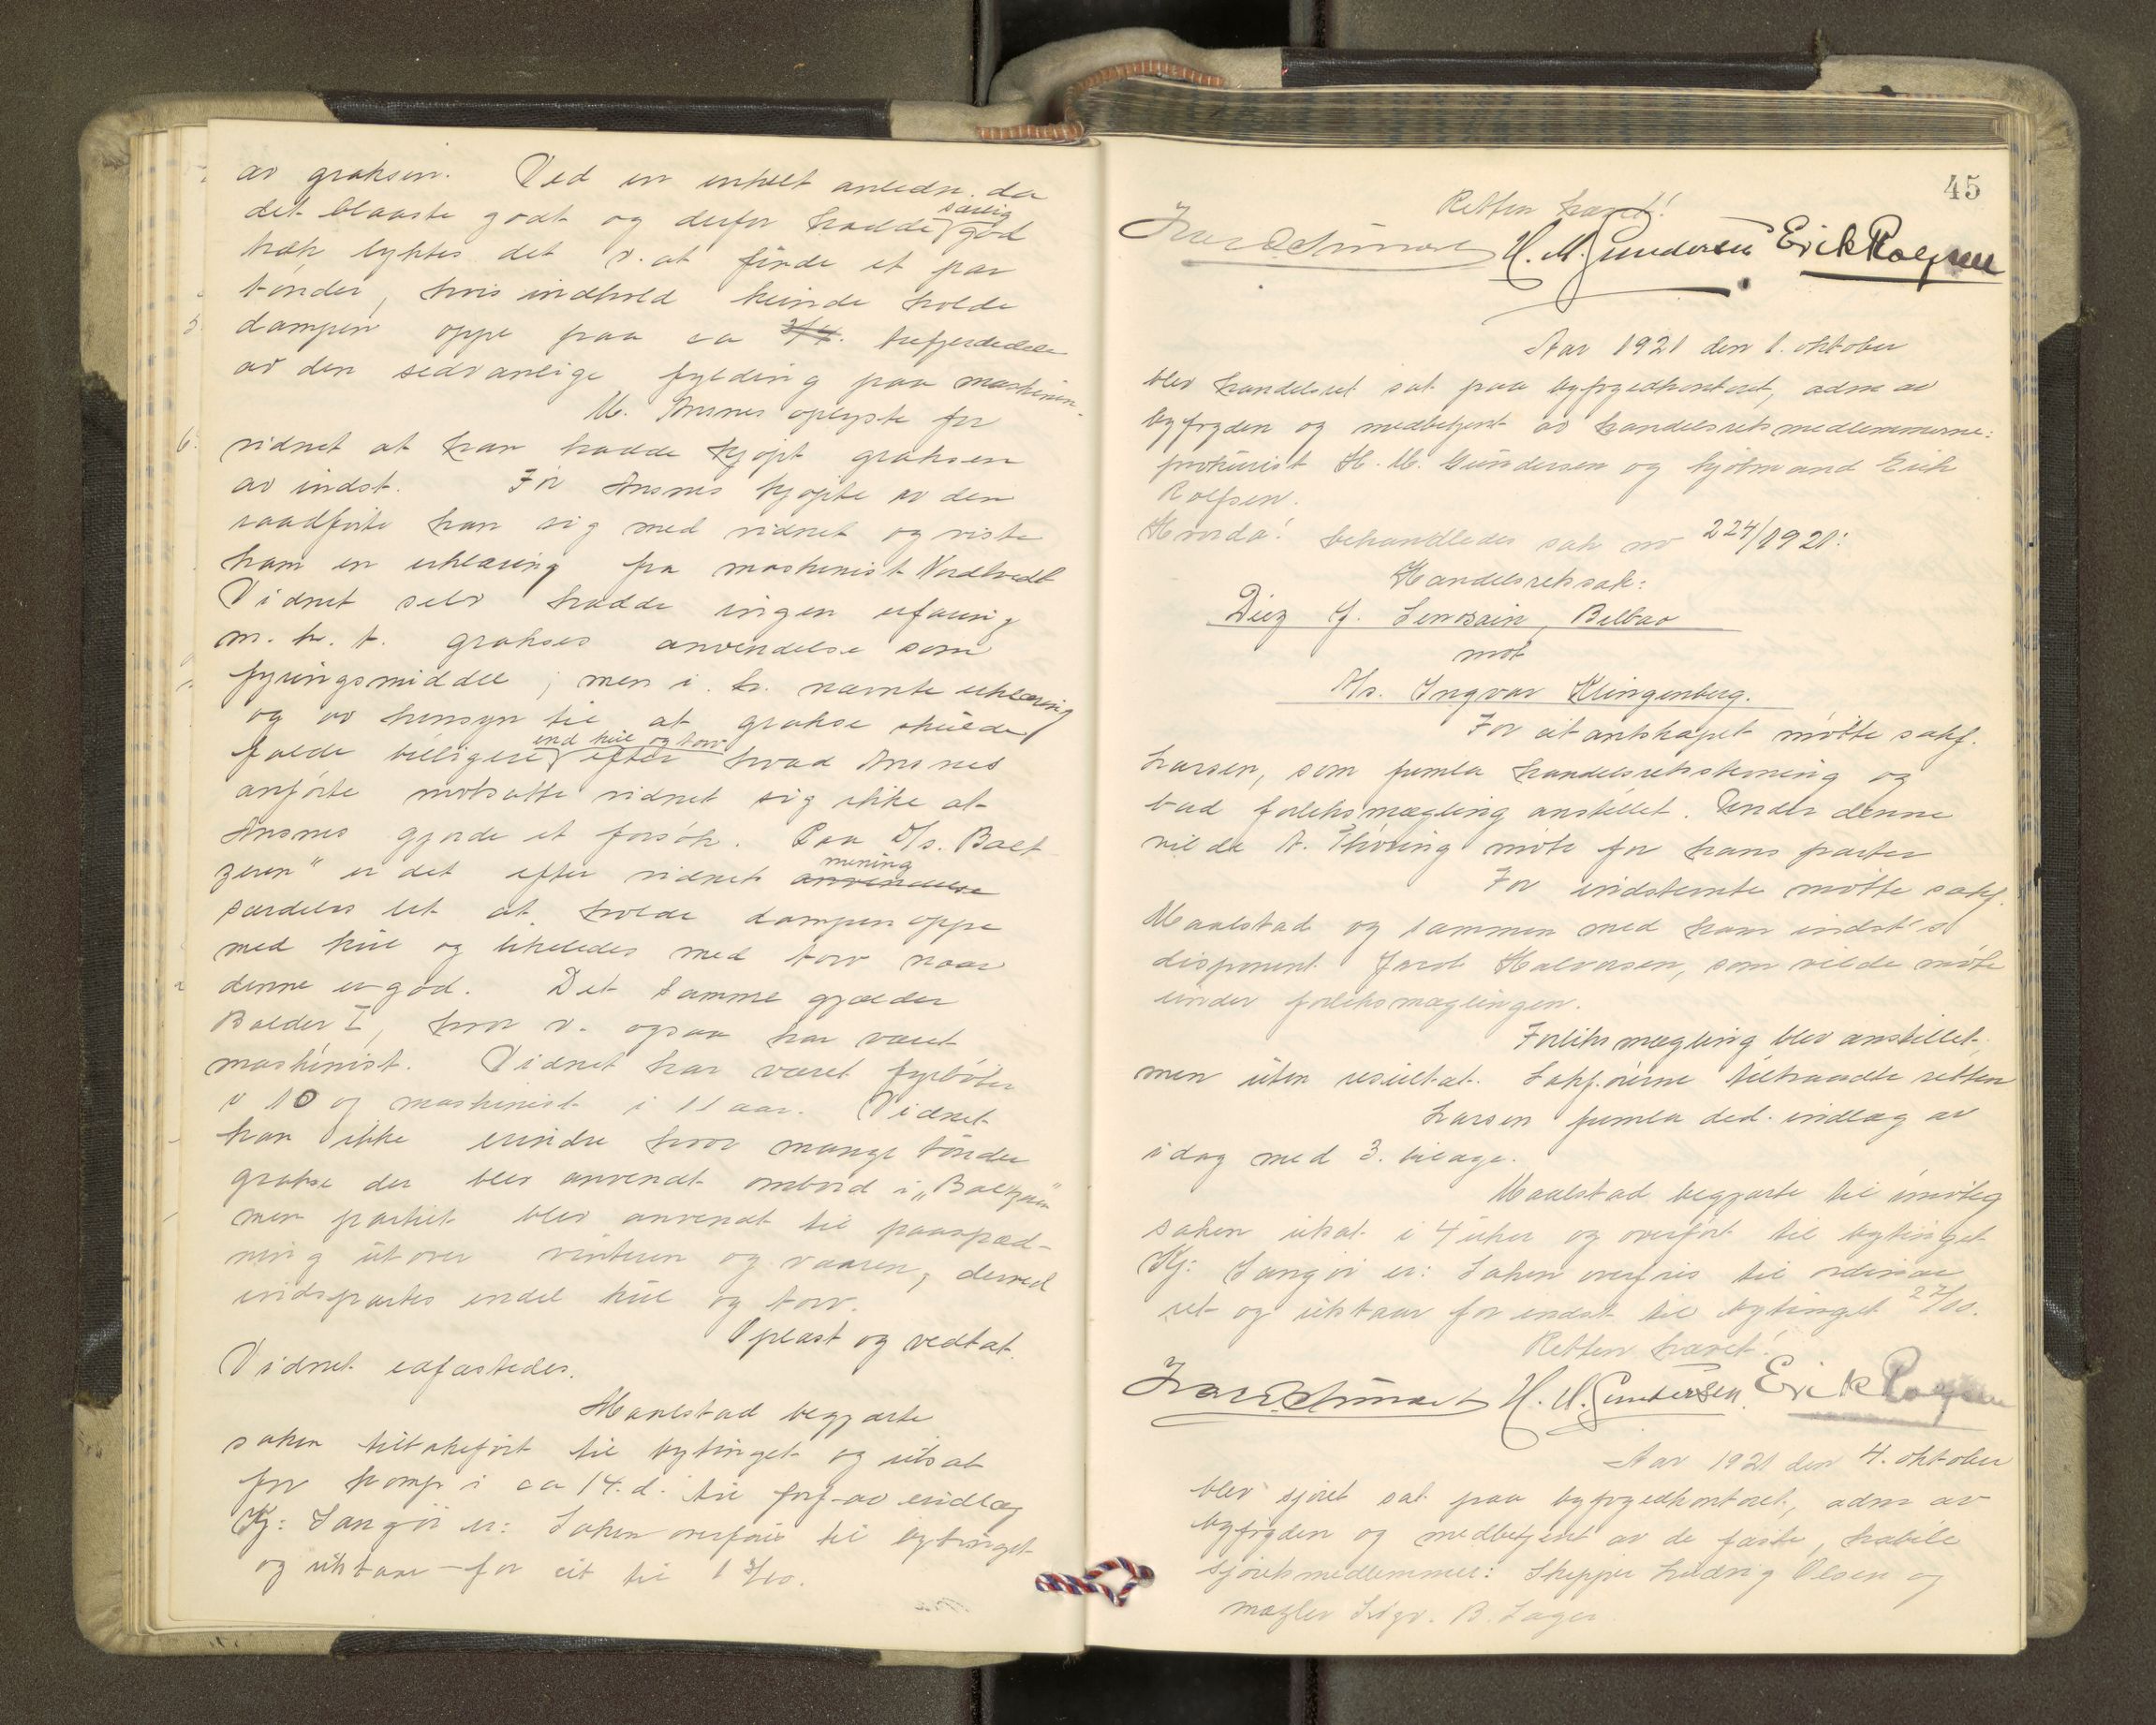 av graksen. Ved en enkelt anledn. da
det blaaste godt og derfor hadde særlig god
træk lyktes det v. at finde et par
tønder, hvis indhold kunde holde
dampen oppe paa ca 3/4. trefjerdedele
av den sedvanlige fylding paa maskinen.
M. Ansnes oplyste for
vidnet at han hadde kjøpt graksen
av indst. Før Ansnes kjøpte av den
raadførte han sig med vidnet og viste
ham en erklæring fra maskinist Nordtvedt
Vidnet selv hadde ingen erfaring
m. h. t. grakses anvendelse som
fyringsmiddel; men i. h. nævnte erklæring
og av hensyn til at grakse skulde
falde billigere end kul og torv efter hvad Ansnes
anførte motsatte vidnet sig ikke at
Ansnes gjorde et forsøk. Paa D/s. Balt
zersen" er det efter vidnets anvendelse mening
særdeles let at holde dampen oppe
med kul og likeledes med torv naar
denne er god. Det samme gjælder
Balder I, hvor v. ogsaa har været
maskinist. Vidnet har været fyrbøter
i 10 og maskinist i 11 aar. Vidnet
kan ikke erindre hvor mange tønder
grakse der blev anvendt ombord i „Baltzersen"
men partiet blev anvendt til paaspæd-
ning utover vinteren og vaaren, derved
indspartes endel kul og torv.
Oplæst og vedtat.
Vidnet eafæstedes.
Maalstad begjærte
saken tilbakeført til bytinget og utsat
for komp i ca 14. d. til forf. av indlæg
Kj: Sangør er: Saken overføres til bytinget
og utstaar for cit til 13/10.
45
Retten hævet!
H. M. Gundersen Erik Rolfsen
Aar 1921 den 1. oktober
blev handelsret sat paa byfogedkontoret, adm av
byfogden og medbetjent av handelsretsmedlemmerne:
prokurist H. M. Gundersen og kjøbmand Erik
Rolfsen.
Hvorda! behandledes sak no 224/1921:
Handelsretssak:
Diez y. Senosain, Bilbao
mot
A/s. Ingvar Klingenberg.
For citantskapet møtte sakf.
Larsen, som fremla handelsretsstevning og
bad forliksmægling anstillet. Under denne
vilde A. Thoring møte for hans parter
For indstevnte møtte sakf.
Maalstad og sammen med ham indst's
disponent Jacob Halvasen, som vilde møte
under forliksmæglingen.
Forliksmægling blev anstillet,
men uten resultat. Sakførerne tiltraadte retten
Larsen fremla ded. indlæg av
idag med 3. bilage.
Maalstad begjærte til imøteg
saken utsat i 4 uker og overført til bytinget
Kj: Sangør er: Saken overføres til ordinær
ret og utstaar for indst til bytinget 27/10.
Retten hævet!
H. M. Gundersen. Erik Rolfsen
Aar 1921 den 4. oktober
blev sjøret sat paa byfogedkontoret, adm av
byfogden og medbetjent av de faste, habile
sjøretsmedlemmer: Skipper Ludvig Olsen og
mægler Sigv. B. Lager